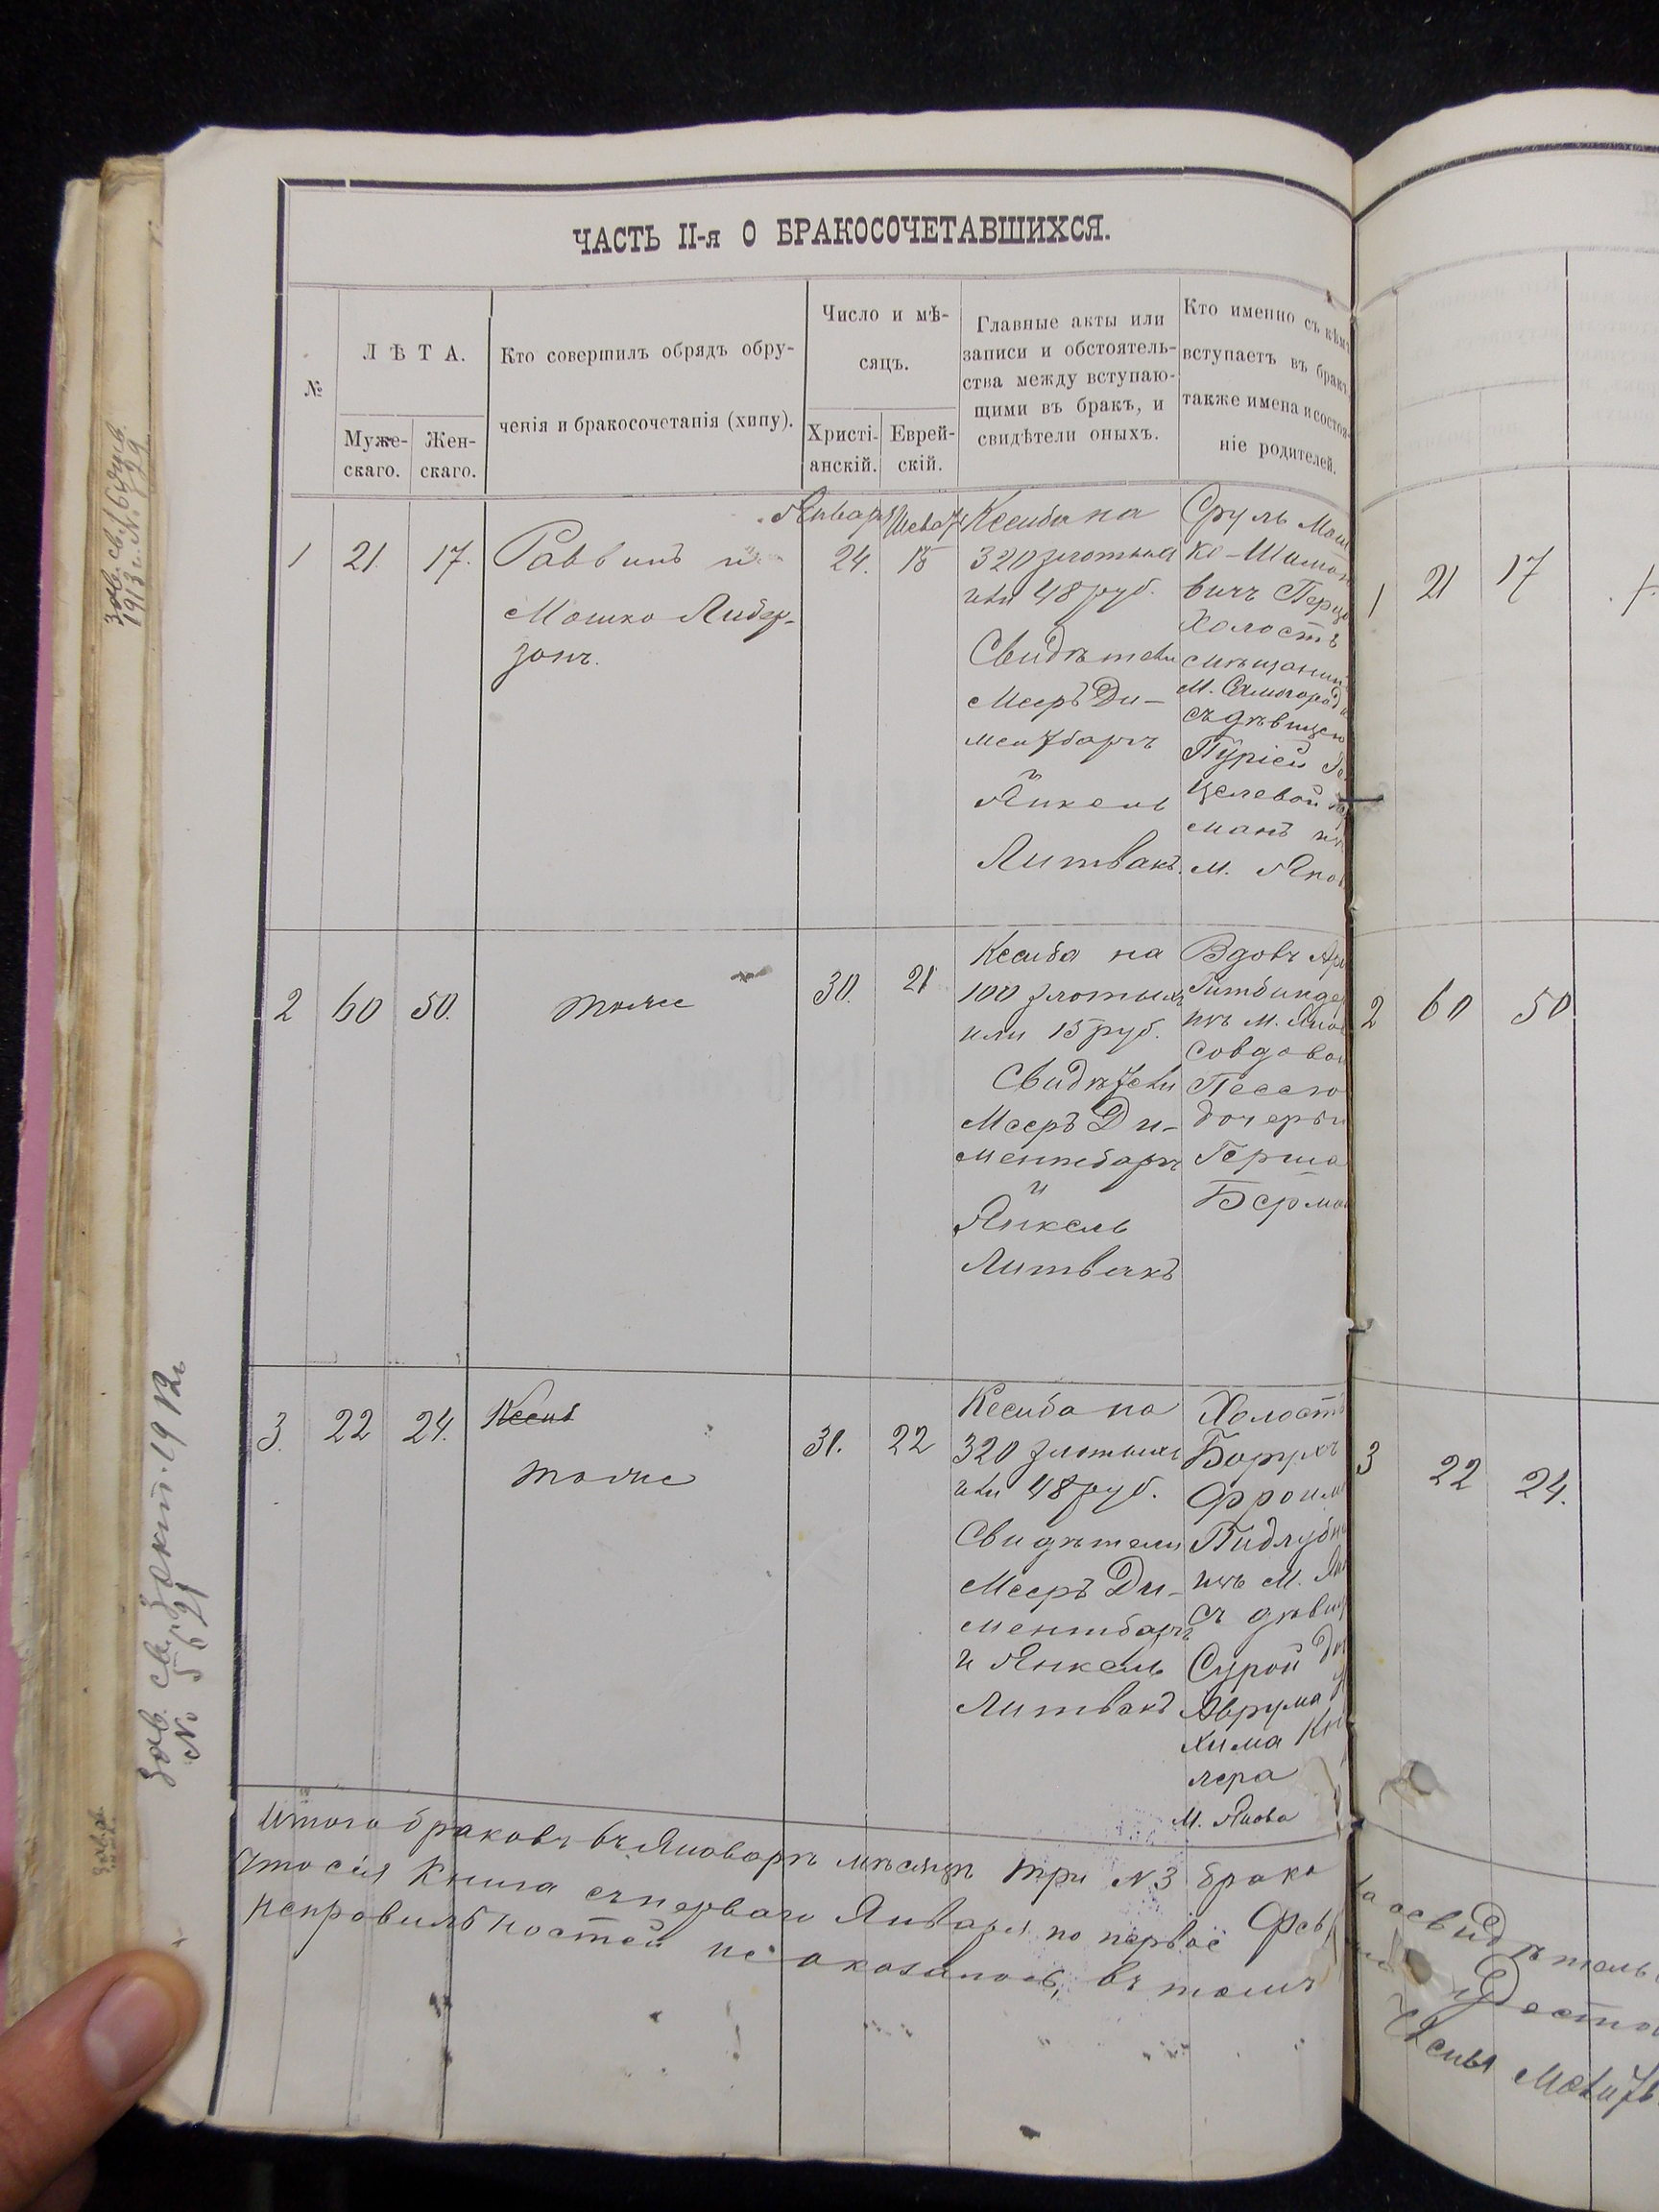 ЧАСТЬ II-я О БРАКОСОЧЕТАВШИХСЯ.
№
ЛѢТА.
Муже-
скаго.
Жен-
скаго.
Кто совершилъ обрядъ обру-
ченія и бракосочетанія (хипу).
Число и мѣ-
сяцъ.
Христі-
анскій.
Еврей-
скій.
Главные акты или
записи и обстоятель-
ства между вступаю-
щими въ бракъ, и
свидѣтели оныхъ.
Кто именно съ кѣмъ
вступаетъ въ бракъ
также имена и состоя-
ніе родителей.
1
21.
17.
Раввинъ
Мошко Либер-
зонъ.
Января
24.
Шевата
15
Ксиба на
320 злотыхъ
или 48 руб.
Свидѣтели
Мееръ Ди-
ментбаргъ
и
Янкель
Литвакъ.
Сруль Мош
ко-Шимон
вичъ Перц
Холостъ
мѣщанин
М.
съ дѣвицею
Пуріей
целевой
манъ
М. Яно
2
60
50.
тоже
30.
21
Ксиба на
100 злотыхъ
или 15 руб.
Свидѣтели
Мееръ Ди-
ментбаргъ
и
Янкель
Литвакъ
Вдовъ
Гитбинде
изъ М. Яно
со вдово
Пессею
дочерью
Герша
Берма
3.
22
24.
Ксиб
тоже
31.
22
Ксиба на
320 злотыхъ
или 48 руб.
Свидѣтели
Мееръ Ди-
ментбаргъ
и Янкель
Литвакъ
Холостъ
Борухъ
Фроим
Пидлубн
изъ М. Ян
съ дѣви
Сурой
Аврума
Хима
лера
М. Янова
Итого браковъ въ Январѣ мѣсяцѣ три № 3 брака
Что сія Книга съ перваго Января по первое Фев
неправильностей не оказалось, въ томъ
1
21
17
2
60
50
3
22
24.
Члены
1913 г. № 729
№ 521